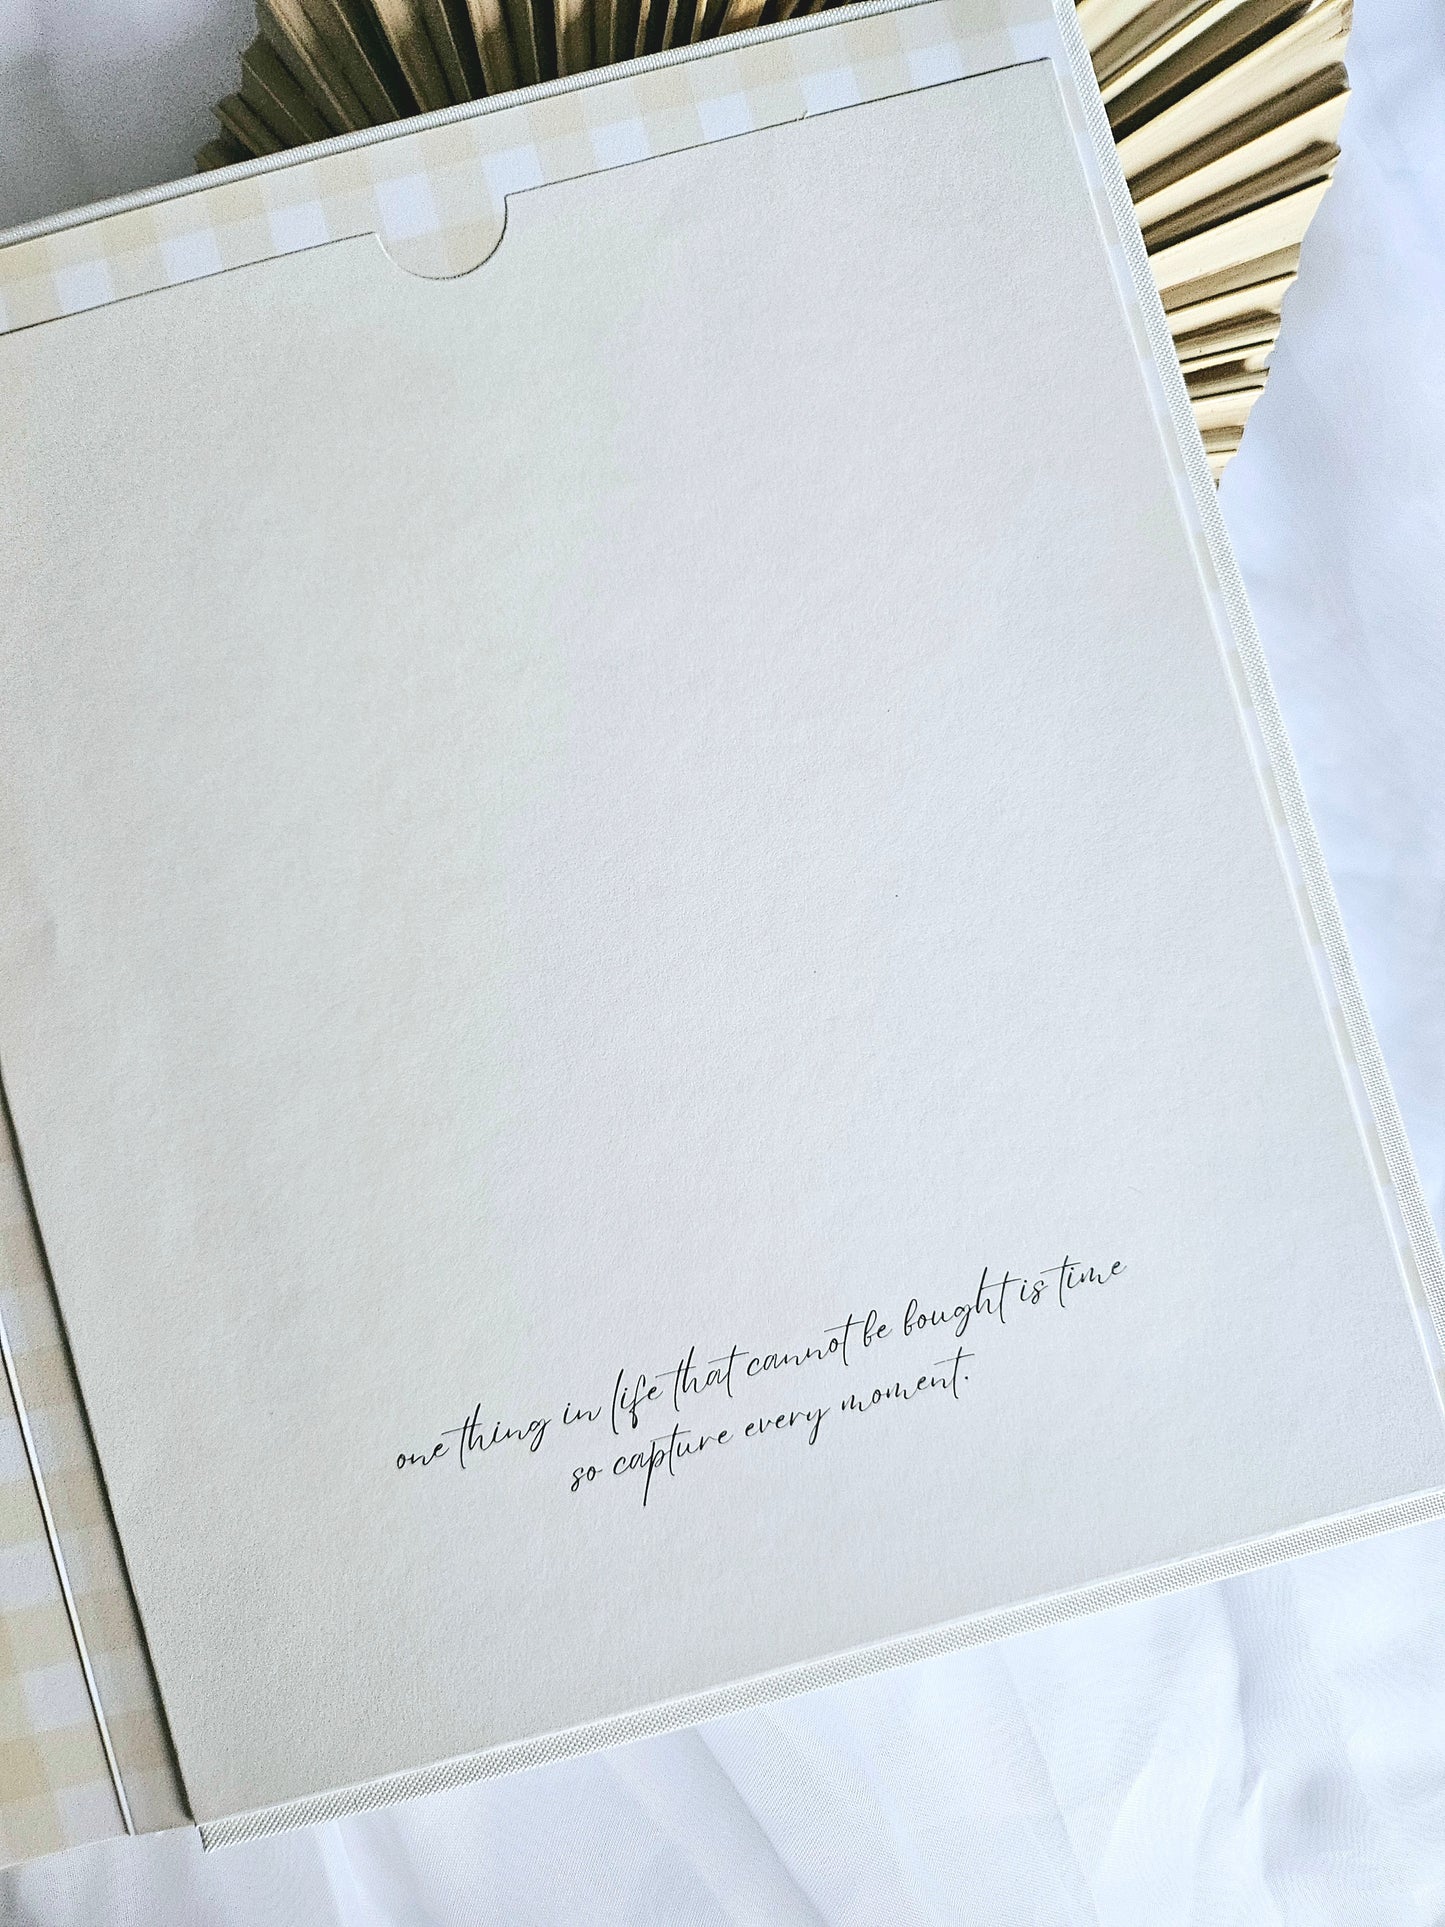 one thing in life that cannot be bought is time
so capture every moment.